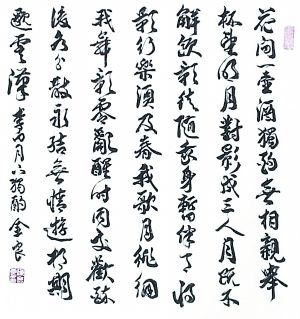 花間一壺酒獨酌無相親舉
杯邀明月對影成三人月既不
解飲影徒隨我身暫伴月將
影行樂須及春我歌月徘徊
我舞影零亂醒時同交歡醉
後各分散永結無情遊相期
邈雲漢 李白月下獨酌 金良